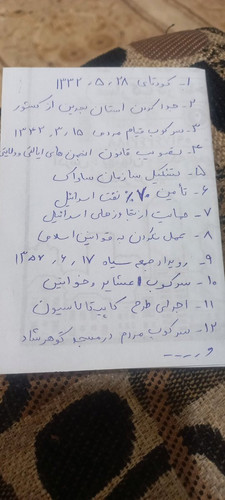 ۱- کودتای ۲۸، ۵، ۱۳۳۲
۲- جدا کردن استان بحرین از کشور
۳- سرکوب قیام مردمی ۱۵، ۳، ۱۳۴۲
۴- تصویب قانون انجمن های ایالتی و ولایتی
۵- تشکیل سازمان ساواک
۶- تأمین ۷۰٪ نفت اسرائیل
۷- حمایت از تجاوزهای اسرائیل
۸- عمل نکردن به قوانین اسلامی
۹- رویداد جمعه سیاه ۱۷، ۶، ۱۳۵۷
۱۰- سرکوب عشایر و خوانین
۱۱- اجرای طرح کاپیتالاسیون
۱۲- سرکوب مردم در مسجد گوهرشاد
و ----